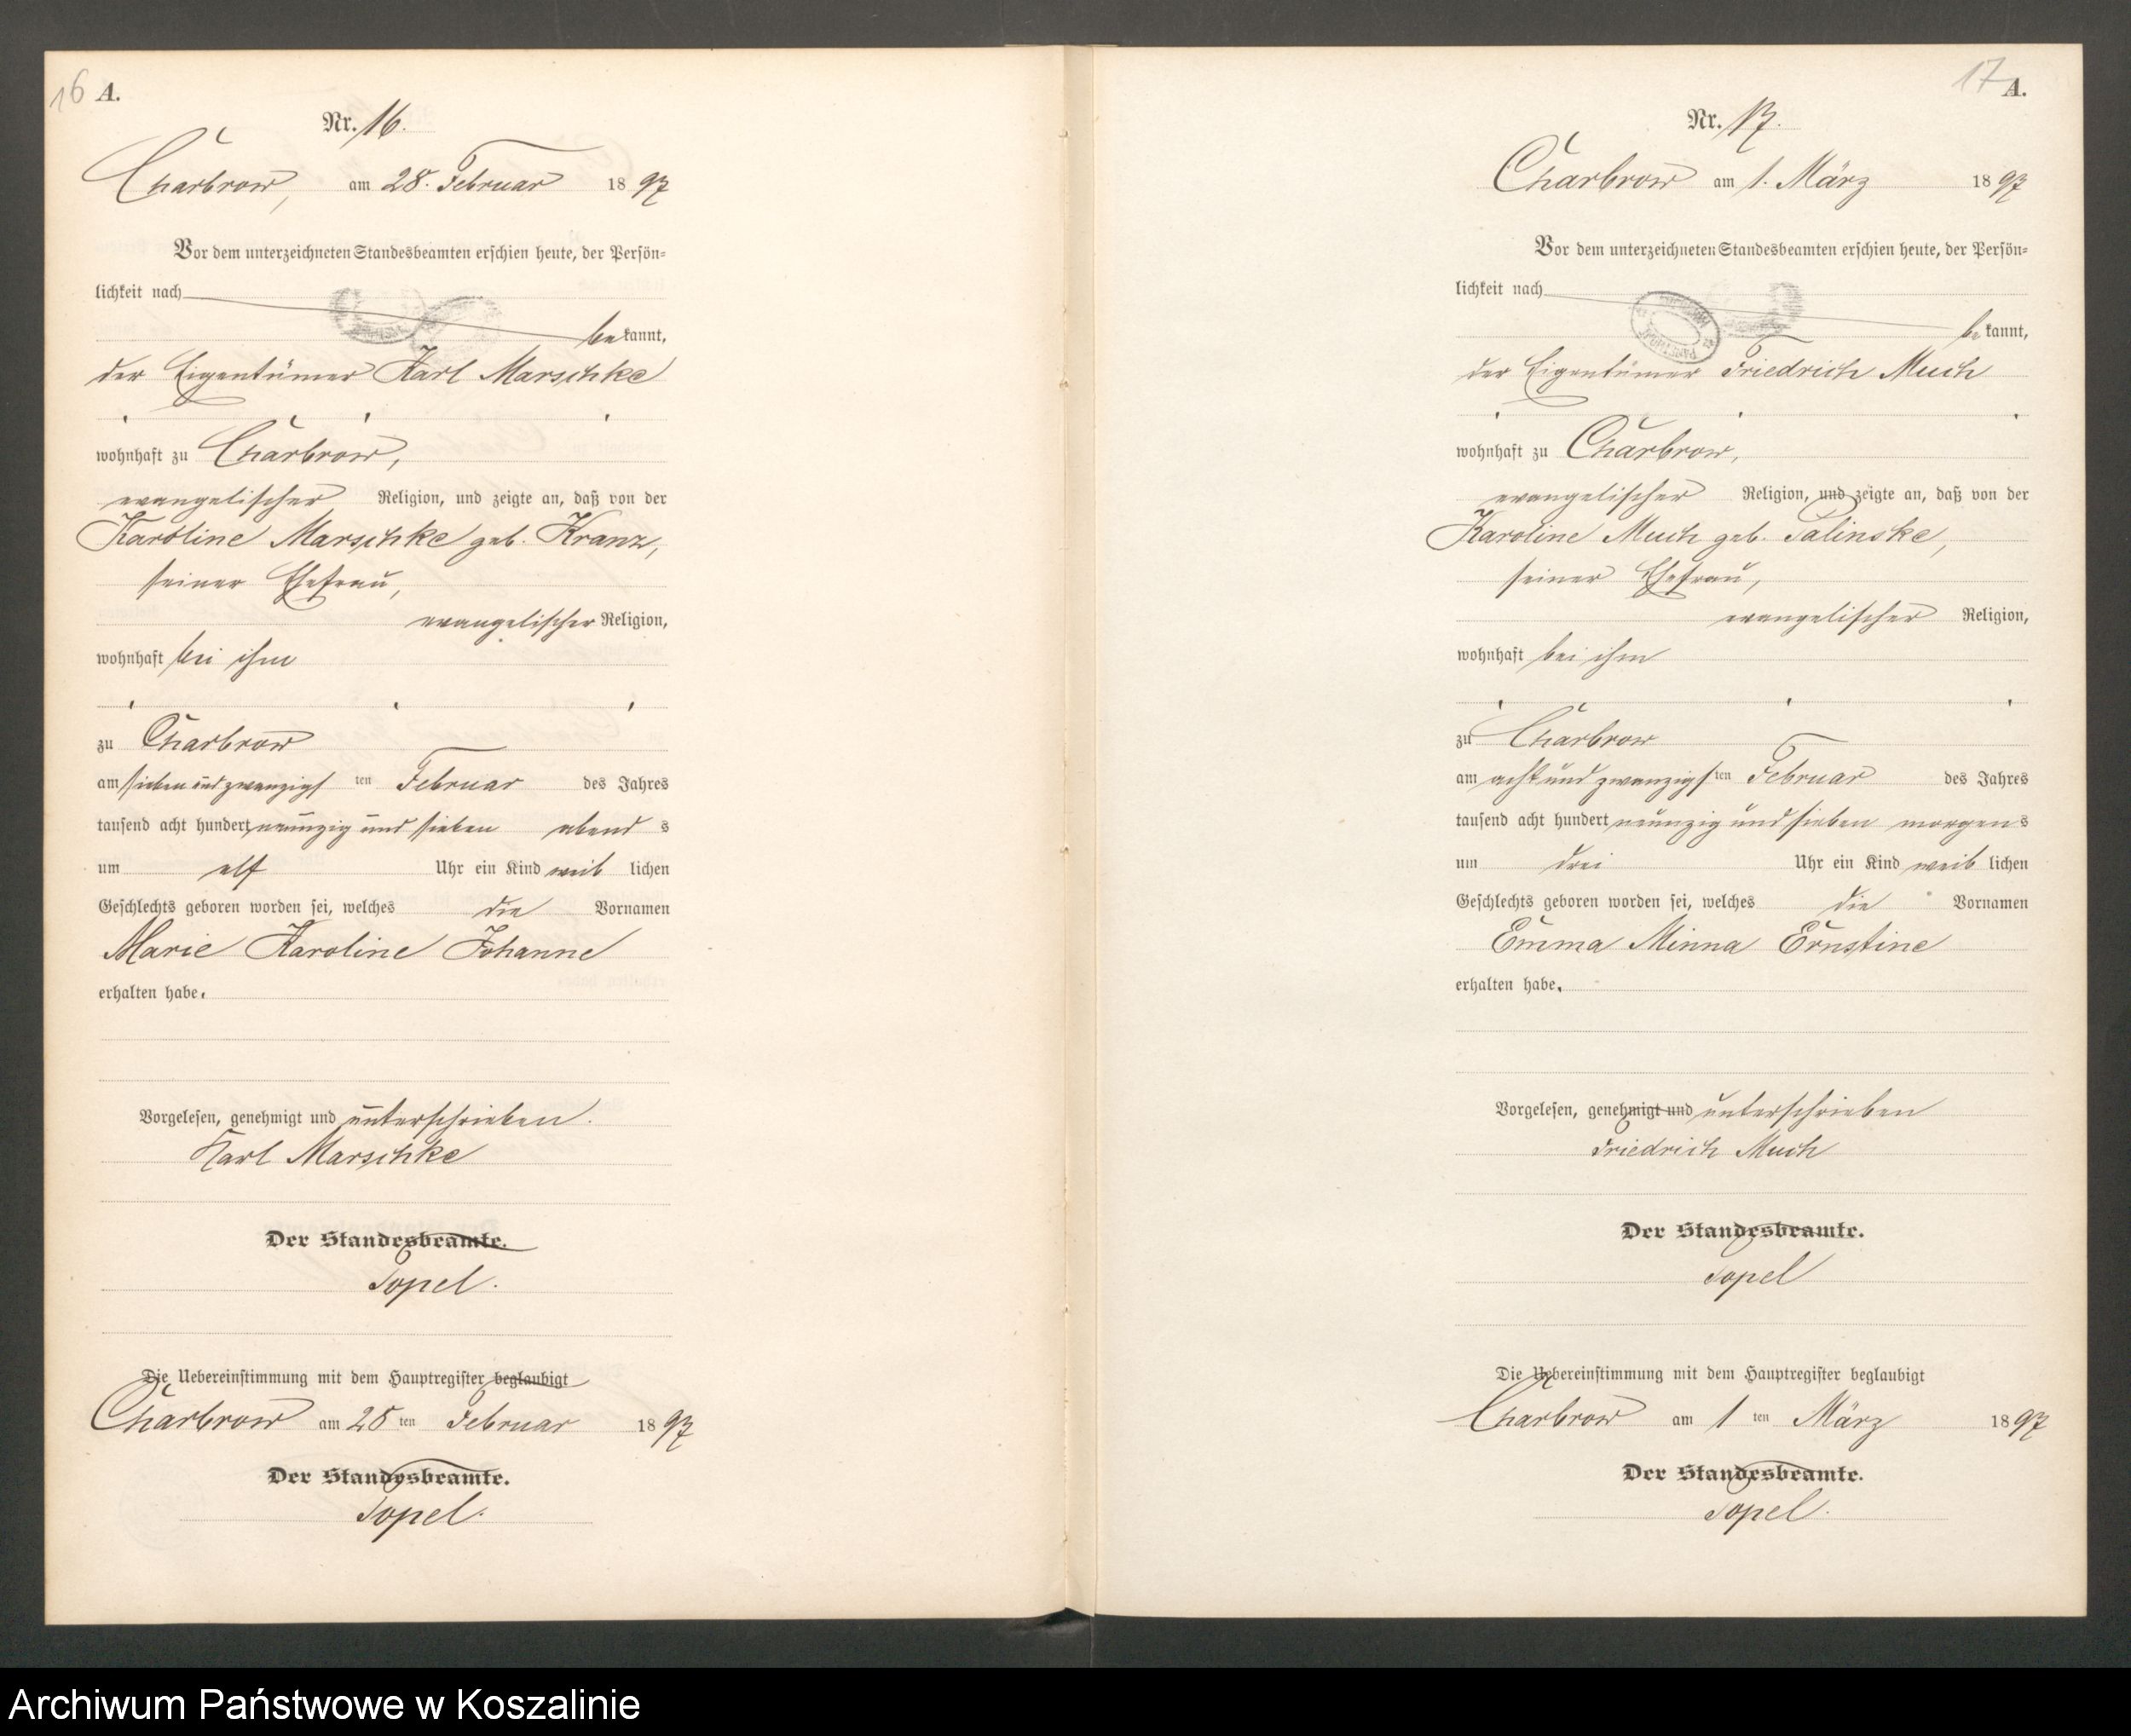 16 A.
Nr. 16.
Charbrow, am 28. Februar 1897
Vor dem unterzeichneten Standesbeamten erschien heute, der Persön-
lichkeit nach
bekannt,
der Eigentümer Karl Marschke
wohnhaft zu Charbrow,
evangelischer Religion, und zeigte an, daß von der
Karoline Marschke geb. Kranz,
seiner Ehefrau,
evangelischer Religion,
wohnhaft bei ihm
zu Charbrow
am sieben und zwanzigsten Februar des Jahres
tausend acht hundert neunzig und sieben abends
um elf Uhr ein Kind weiblichen
Geschlechts geboren worden sei, welches die Vornamen
Marie Karoline Johanne
erhalten habe.
Vorgelesen, genehmigt und unterschrieben.
Karl Marschke
Der Standesbeamte.
Topel.
Die Uebereinstimmung mit dem Hauptregister beglaubigt
Charbrow am 28ten Februar 1897
Der Standesbeamte.
Topel.
17 A.
Nr. 17.
Charbrow am 1. März 1897
Vor dem unterzeichneten Standesbeamten erschien heute, der Persön-
lichkeit nach
bekannt,
der Eigentümer Friedrich Much
wohnhaft zu Charbrow,
evangelischer Religion, und zeigte an, daß von der
Karoline Much geb. Palinske,
seiner Ehefrau,
evangelischer Religion,
wohnhaft bei ihm
zu Charbrow
am acht und zwanzigsten Februar des Jahres
tausend acht hundert neunzig und sieben morgens
um drei Uhr ein Kind weiblichen
Geschlechts geboren worden sei, welches die Vornamen
Emma Minna Ernstine
erhalten habe.
Vorgelesen, genehmigt und unterschrieben
Friedrich Much
Der Standesbeamte.
Topel
Die Uebereinstimmung mit dem Hauptregister beglaubigt
Charbrow am 1ten März 1897
Der Standesbeamte.
Topel.
Archiwum Państwowe w Koszalinie